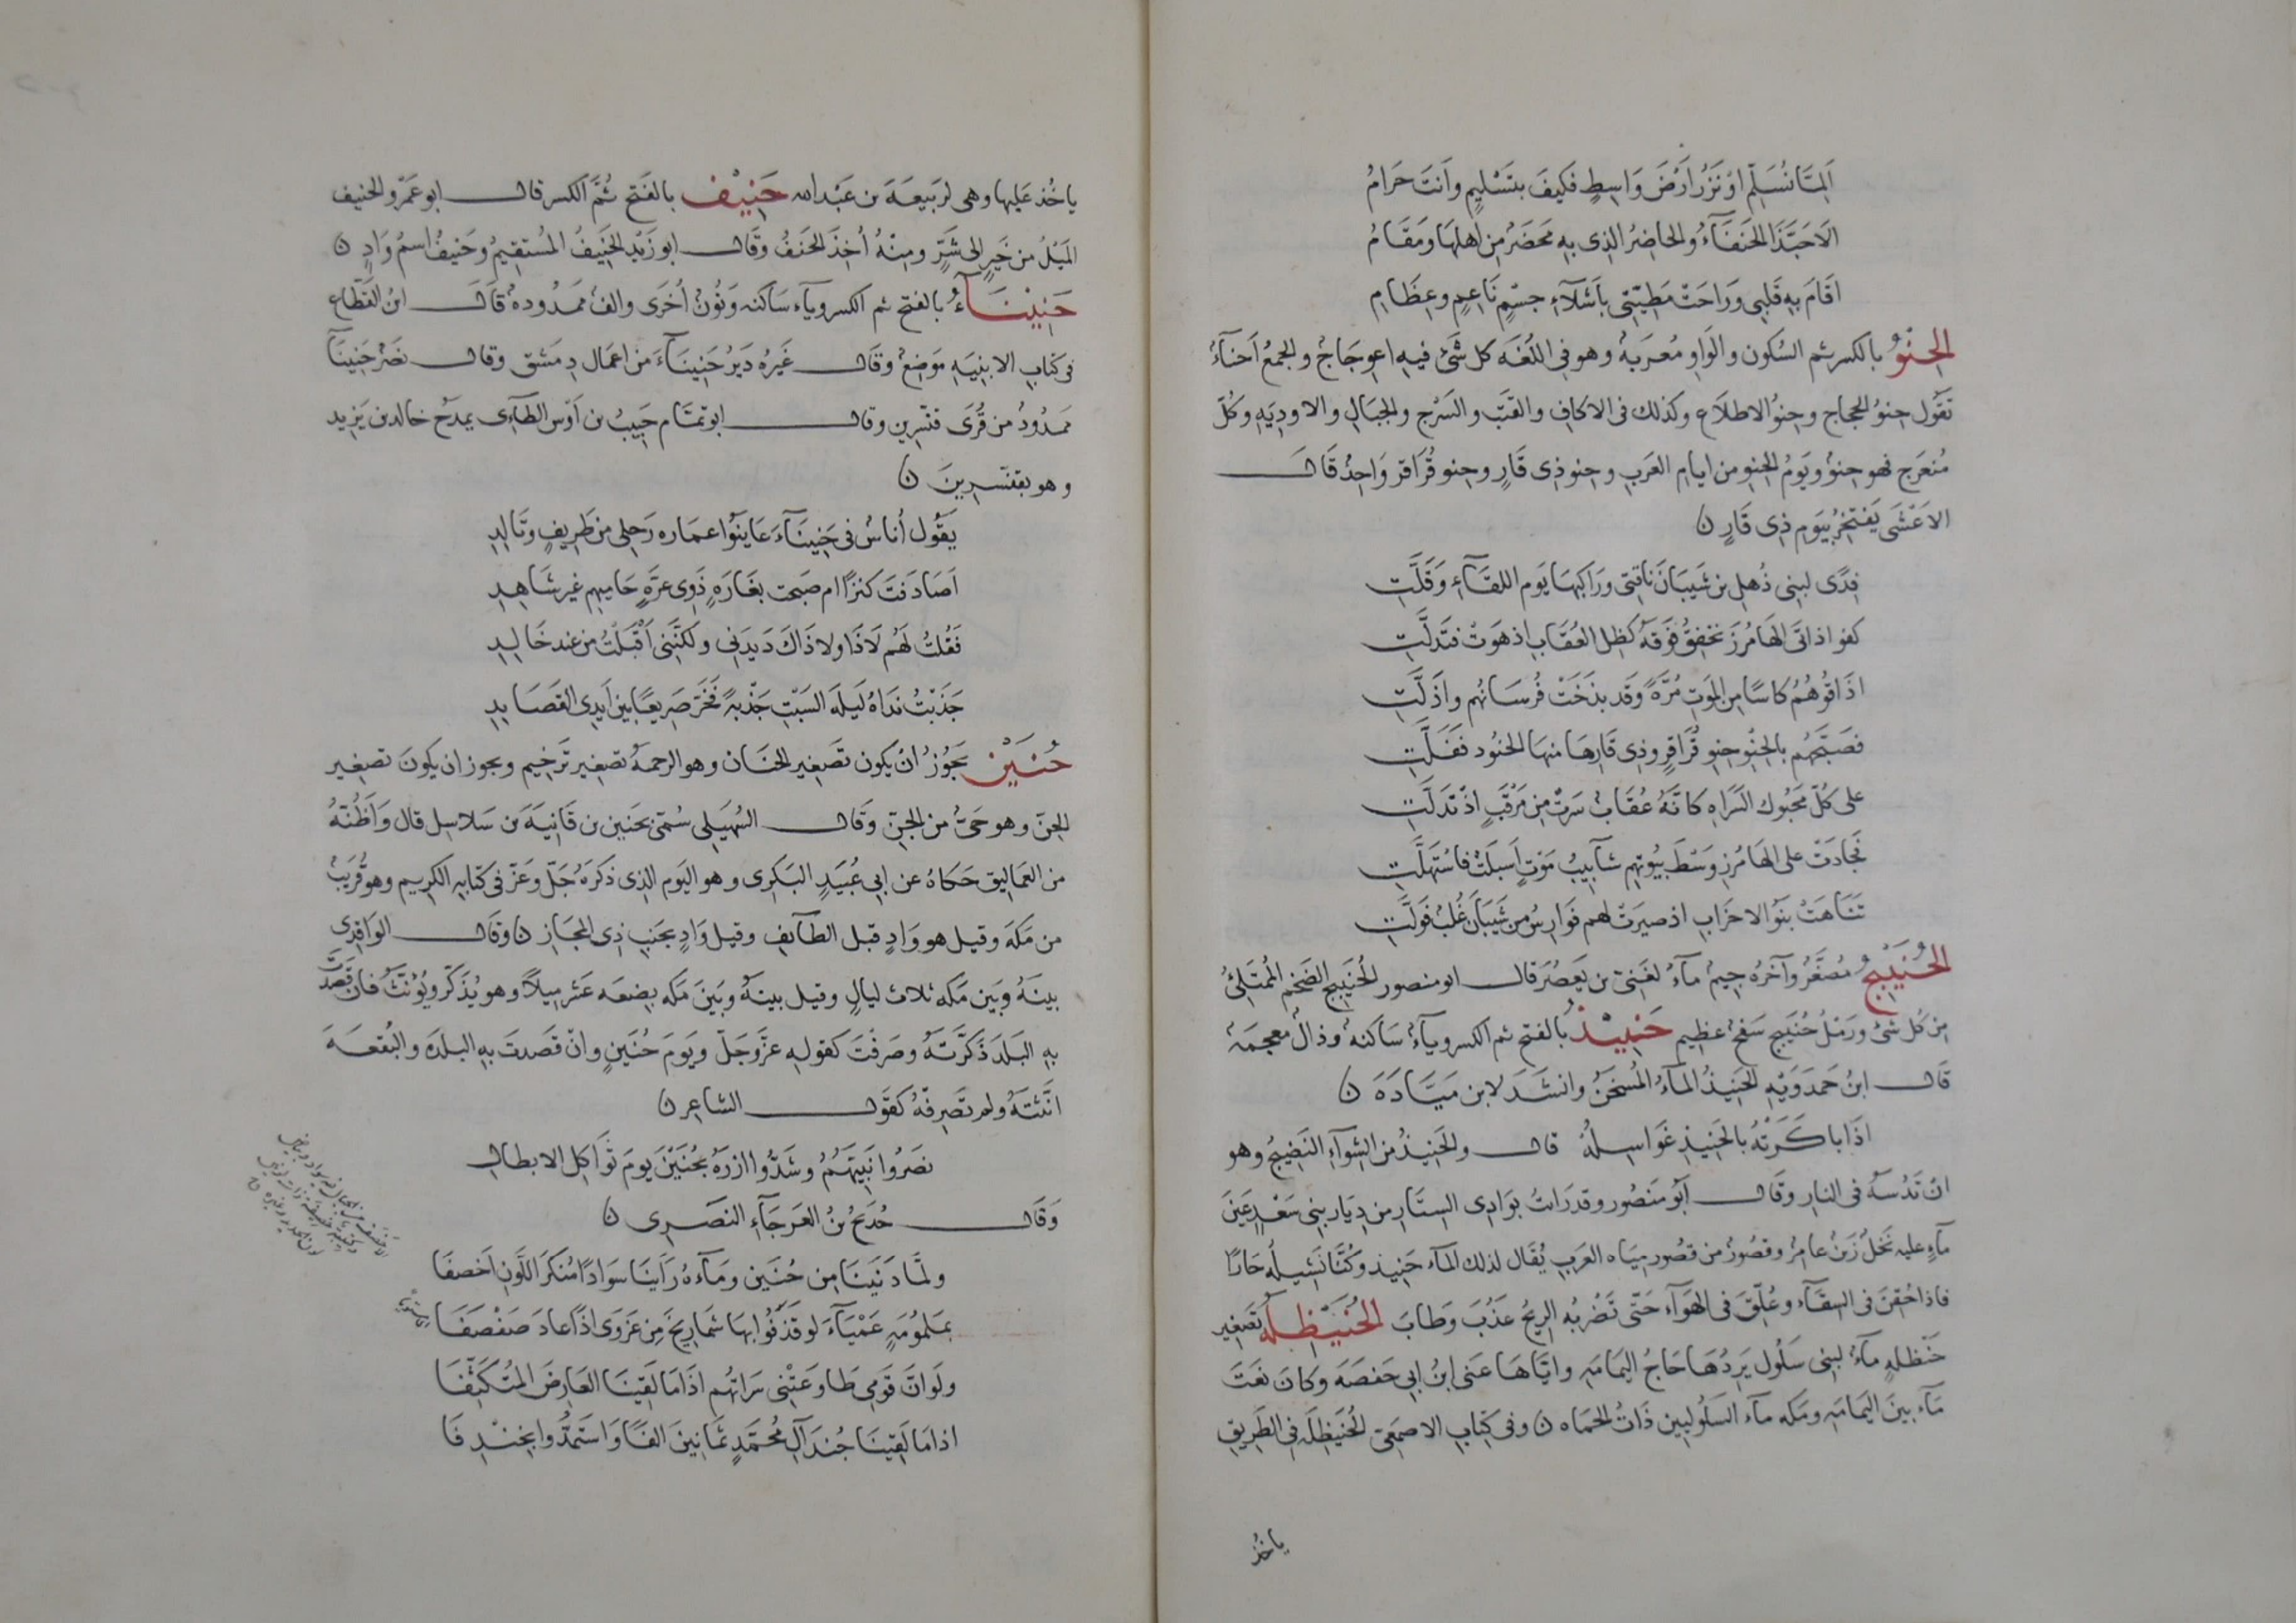 اَلِمَّا نُسَلِّم اوْ نَزُرْ اَرْضَ وَاسِطٍ فكيفَ بتَسْليمٍ وَانتَ حَرامُ
الَا حَبَّذَا الحَنفَآءُ والحاضِرُ الذِى بهِ مَحضَرٌ مِن اهلهَا ومَقَامُ
اقَامَ بهِ قَلبِى وَرَاحَتْ مَطِيّتِى باَشلَآءِ جسْمٍ نَاعِمٍ وعِظَامِ
الحِنْوُ بالكسر ثم السُكون والوَاو مُعرَبةٌ وهو فى اللغَه كل شَىْ فيهِ اعوِجَاجٌ والجمعُ اَحنآءٌ
تقُول حِنوُ الحجاج وحِنوُ الاطلاَع وكذلك فى الاكاف والقَتَب والسَرْج والجبَالِ والاودِيَهِ وكُلّ
مُنعَرج فهو حِنوٌ ويَومُ الحِنوِ من ايام العَربِ وحِنو ذِى قَارٍ وحِنو قُرَاقر وَاحِدٌ قَالَ
الاعْشَى يَفتخِرُ بيَومِ ذِى قَارٍ ن
فِدًى لبنِى ذُهلِ بن شَيبَانَ نَاقتِى ورَاكبهَا يَوم اللقَآءِ وَقَلَّتِ
كفوا اذ اتَى الهَامُرزَ تخفِقُ فَوقهُ كظِل العُقَابِ اذ هَوَتْ فتَدلَّتِ
اذَاقُوهُمُ كاسًا مِن المَوَتِ مُرَّةً وَقد بذَخَتْ فُرسَانُهم واَذَلَّتِ
فصَبَّحَهُم بالحِنوِ حِنوِ قُرَاقِرٍ وذِى قَارِهَا منهَا الجنُود ففَلَّتِ
على كُلّ مَحبُوك السَرَاهِ كانَّهُ عُقَابٌ سَرتْ مِن مَرْقَبٍ اذ تدَلَّتِ
فَجَادَتْ على الهَامُرزِ وَسْطَ بيُوتهِم شآبيبُ مَوْتٍ اَسبَلَتْ فاستَهلَّتِ
تَنَاهَتْ بنُوا الاحزَابِ اذ صبرَتْ لهم فَوَارِسُ من شَيبَانَ غُلبٌ فَولَّتِ
الحُنَيْبِجُ مُصَغَّرٌ وآخرُه جِيمٌ مآءٌ لغَنِىّ بن يَعصُرَ قال ابو منصور الحُنَيبِج الضَخمُ المُمتَلِئُ
مِن كل شَىْ ورَملٌ حُنَيبِج سَفحٌ عظِيم حَنِيْذُ بالفتح ثم الكسر ويآءٌ سَاكنهٌ وذالٌ معجمَهٌ
قَالَ ابنُ حَمدَوَيْهِ الحَنِيذُ المآءُ المُسخَنُ وانشَدَ لابن مَيّادَهَ ن
اذَا باكرَتْهُ بالحَنِيذِ غَوَاسِلُهُ قال والحَنِيذُ مِن الشِوآءِ النَضِيجُ وهو
انْ تَدُسّهُ فى النارِ وقَالَ اَبُو مَنصُور وقد رَايتُ بوَادِى السِتَارِ من دِيَار بنِى سَعْدٍ عَينَ
مآءٍ عليهِ نَخلٌ زَينٌ عامِرٌ وقصُورٌ من قصُور ميَاه العَربِ يُقَال لذلك المآء حَنِيذ وكُنّا نَشِيلُه حَارًا
فاذا حُقنَ فى السقآءِ وعُلّقَ فى الهَوآءِ حَتّى تَضْربُه الرِيحُ عَذُبَ وَطابَ الحُنَيْظِلَهُ تَصغير
حَنْظلهٍ مآءٌ لبنِى سَلُول يَرِدُهَا حَاجُ اليمَامَهِ وايّاهَا عَنى ابنُ ابِى حَفصَهَ وكانَ نعَتَ
مَآء بينَ اليمَامَهِ ومَكه مآء السَلُوليين ذَاتُ الحمَاه ن وفى كِتَابِ الاصمَعِىّ الحُنَيظِلَه فى الطَرِيقِ
ياخُذ
ياخُذ عَليها وهى لرَبيعَهَ بن عَبْد الله حَنِيْف بالفَتح ثُمَّ الكسر قال ابو عَمْرو الحنيف
المَيْلُ من خَيرٍ الى شَرٍّ ومنهُ اُخِذَ الحَنَفُ وقَالَ ابو زَيْد الحَنِيفُ المُستَقِيمُ وحَنِيفُ اسمُ وَادٍ ن
حَنِيْنَآءُ بالفتح ثم الكسر ويآء سَاكنه وَنُونٌ اُخرَى والفٌ ممَدُودهٌ قَالَ ابنُ القَطّاع
فى كتابِ الابنِيَهِ مَوضِعٌ وقَالَ غَيرُه دَيرُ حَنِينَآءَ من اعمَال دِمَشق وقال نصَرٌ حَنِينَآ
ممَدُودٌ من قُرَى قنّسرِين وقال ابو تمّام حَبِيبُ بن اَوْس الطآءِى يمدَحُ خالدَ بن يَزِيد
وهو بقنّسرِينَ ن
يَقُول اُناسٌ فى حَنِينَآءَ عَاينُوا عمَاره رَحِلى من طَرِيفٍ وتَالِدِ
اَصَادَفتَ كنزًا ام صَبحت بغَارَهٍ ذَوِى عزَّهٍ حَاميهِم غير شَاهِدِ
فَقُلتُ لهُم لَا ذَا ولا ذَاكَ دَيدَنِى ولكنّنِى اَقْبَلتُ من عند خَالِدِ
جَذَبْتُ نَدَاهُ لَيلَه السَبْتِ جَذْبهً فخَرَّ صَرِيعًا بينَ اَيدِى القَصَايِدِ
حُنَيْن يَجُوزُ انْ يكون تصَغِير الحَنَان وهو الرحمهُ تصغِير تَرخِيم ويجوز ان يكونَ تصغِير
الحِنّ وهو حَىٌّ من الجِنّ وقَالَ السُهَيلى سُمّى بحنَين بن قَانِيَهَ بن سَلاسل قال وَاَظُنّهُ
من العمَاليق حَكاهُ عن ابِى عُبَيدٍ البَكرِى وهو اليَوم الذِى ذكَرهُ جَلّ وَعَزّ فى كتَابهِ الكريم وهو قُرَيبٌ
من مَكهَ وقيل هو وَادٍ قبل الطآيفِ وقيل وَادٍ بجَنبِ ذِى المجَازِ ن وقَالَ الوَاقدِى
بينَهُ وبَين مَكه ثلاث ليالٍ وقيل بينهُ وبَينَ مَكه بِضعَه عشَر ميلًا وهو يُذَكّر ويُؤنّثُ فان قصَدتَ
بهِ البَلدَ ذَكّرَتهُ وصَرفتَ كقولهِ عزّ وَجَلّ ويَومَ حُنَينٍ وانْ قَصَدتَ بهِ البلدَه والبُقعَهَ
انّثتَهُ ولم تصَرِفهُ كقَولِ الشاعِر ن
نصَرُوا نَبيّهُمُ وشَدُّوا ازرَهُ بحُنَيْنَ يومَ تَوَاكلِ الابطال
وَقَالَ خُدَيجُ بنُ العَرجَآءِ النصَرِى ن
ولمّا دَنَينَا مِن حُنَينٍ ومآءهُ رَاَينَا سَوَادًا مُنكَرَ اللَونِ اَخصَفَا
بمَلمُومَهٍ عَمْيَآءَ لو قَذَفُوا بهَا شمَارِيخَ مِن عَزوَى اذًا عادَ صَفصَفَا
ولَو انّ قَومِى طَاوعَتْنِى سَرَاتُهم اذَا مَا لَقينَا العَارِضَ المُتكَثّفَا
اذا مَا لَقينَا جُندَ آلِ مُحَمّدٍ ثمَانِينَ الفًا وَاستَمَدُّوا بخِنْدِفَا